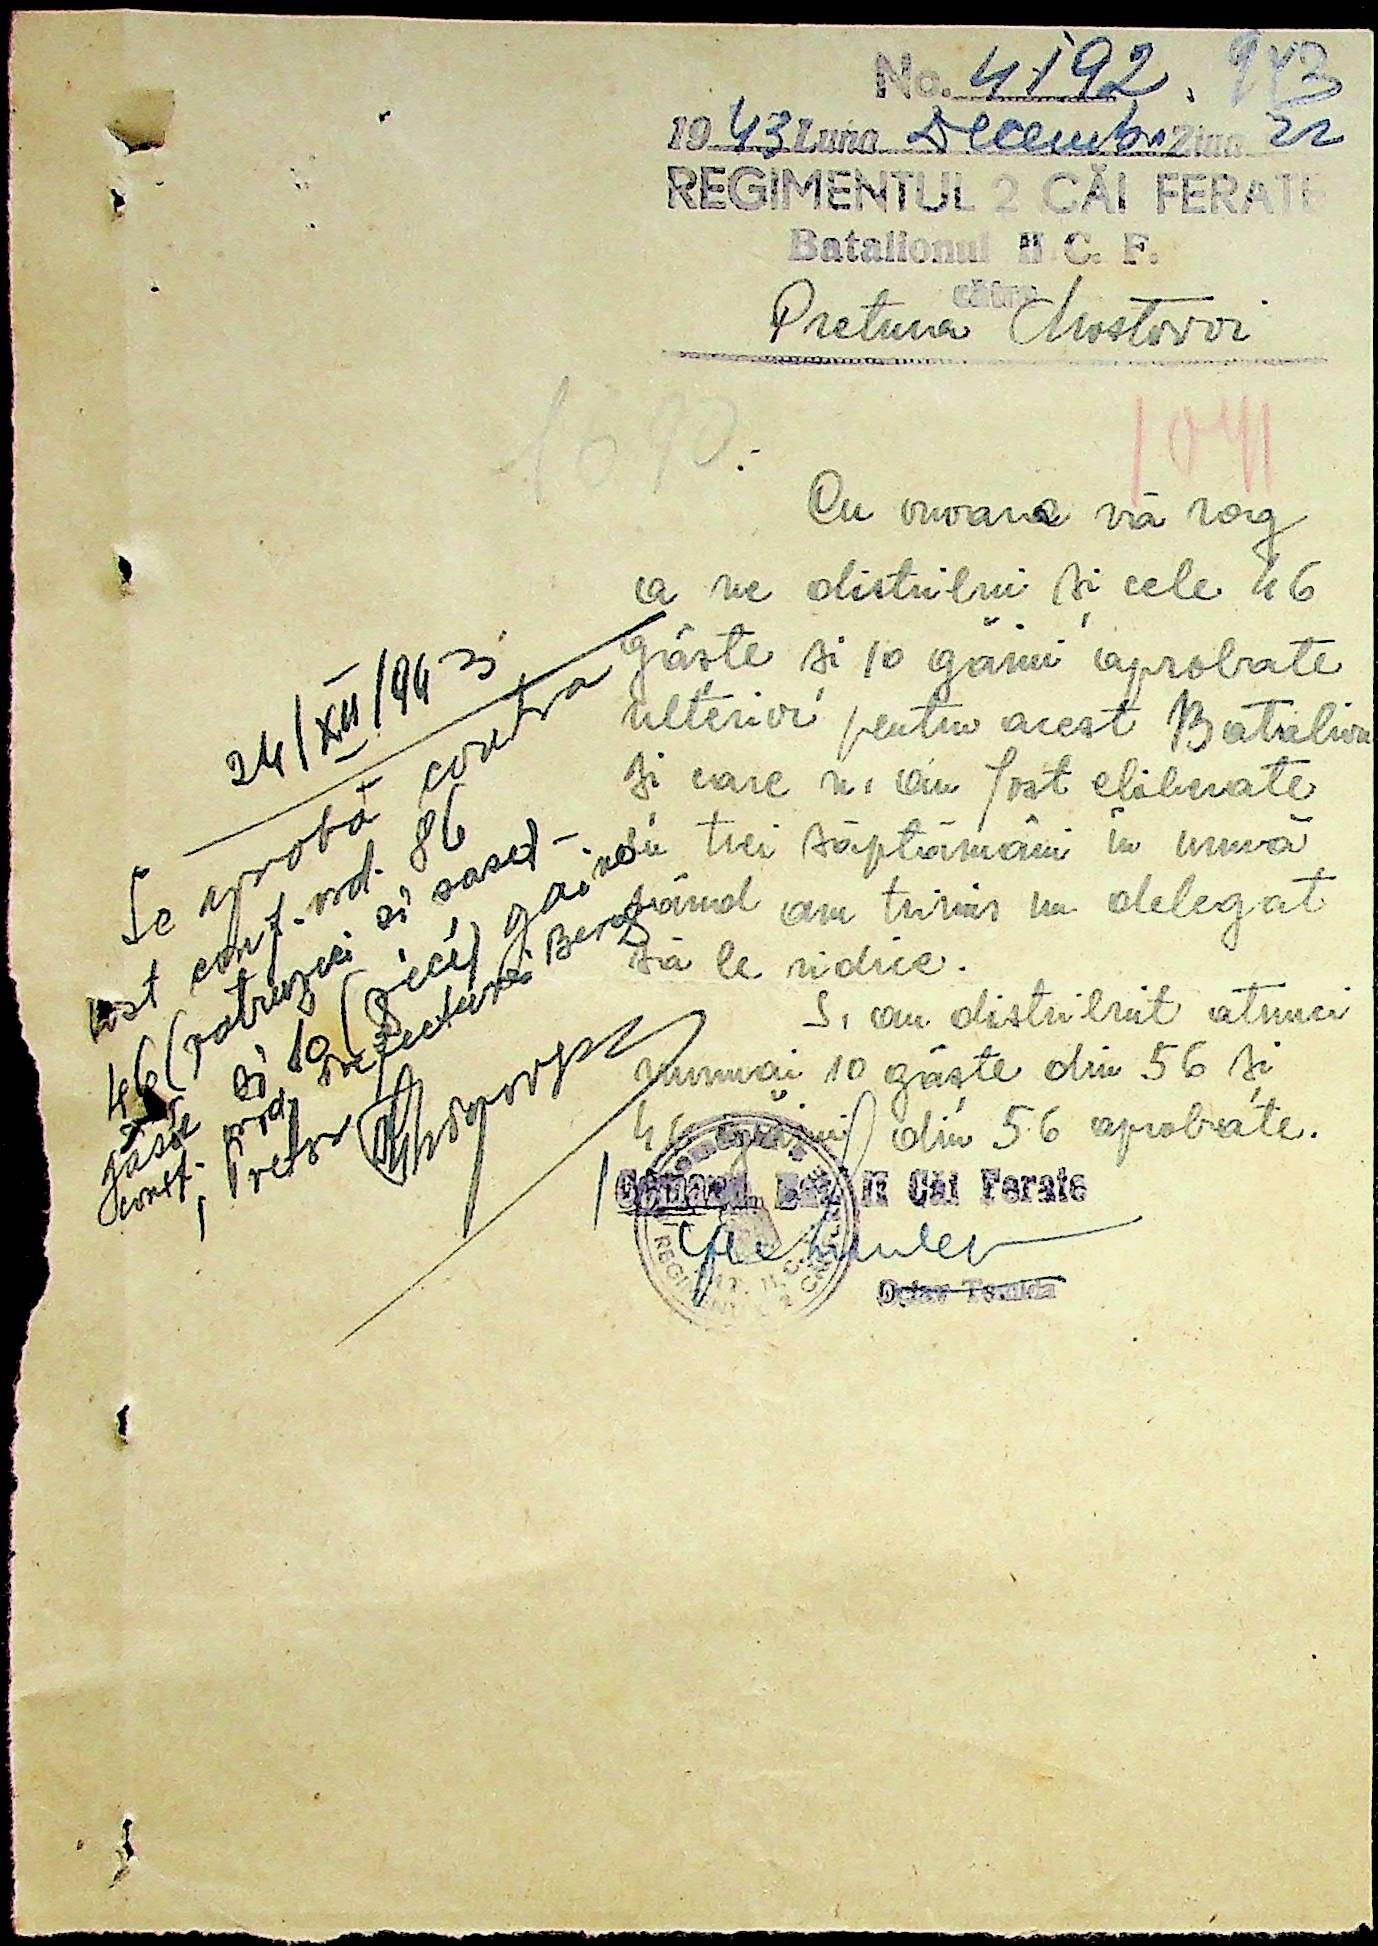 No. 4192. 943
1943 Luna Decembr. Ziua 22
REGIMENTUL 2 CĂI FERATE
Batalionul II C. F.
către
Pretura Mostovoi
1690.
1041
Cu onoare vă rog
a ne distribui și cele 46
gâște și 10 găini aprobate
ulterior pentru acest Batalion
și care n'au fost eliberate
trei săptămâni în urmă
când am trimis un delegat
să le ridice.
S'au distribuit atunci
numai 10 gâște din 56 și
46 găini din 56 aprobate.
Comand. Bat. II Căi Ferate
REGIMENTUL 2
24/XII/943
Se aprobă contra
cost conf. ord. 86
46 (patruzeci și șase)
gâște și 10 (zeci) găini
conf. ord. Prefecturei Berezo
Pretor